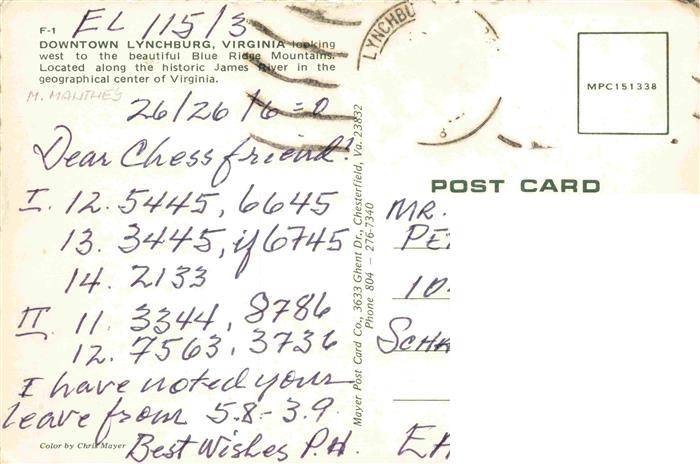 F-1
EL 115/3
DOWNTOWN LYNCHBURG, VIRGINIA looking
west to the beautiful Blue Ridge Mountains.
Located along the historic James River in the
geographical center of Virginia.
M. MANTHEŠ
26/26/6=0
Dear Chessfriend!
I. 12. 5445, 6645
13. 3445, if 6745
14. 2133
II. 11. 3344, 8786
12. 7563, 3736
I have noted your
leave from 5.8.-3.9.
Color by Chris Mayer
Best Wishes P.H.
Mayer Post Card Co., 3633 Ghent Dr., Chesterfield, Va. 23832
Phone 804 - 276-7340
LYNCHBU
MPC151338
POST CARD
MR.
PE
10
SCHK